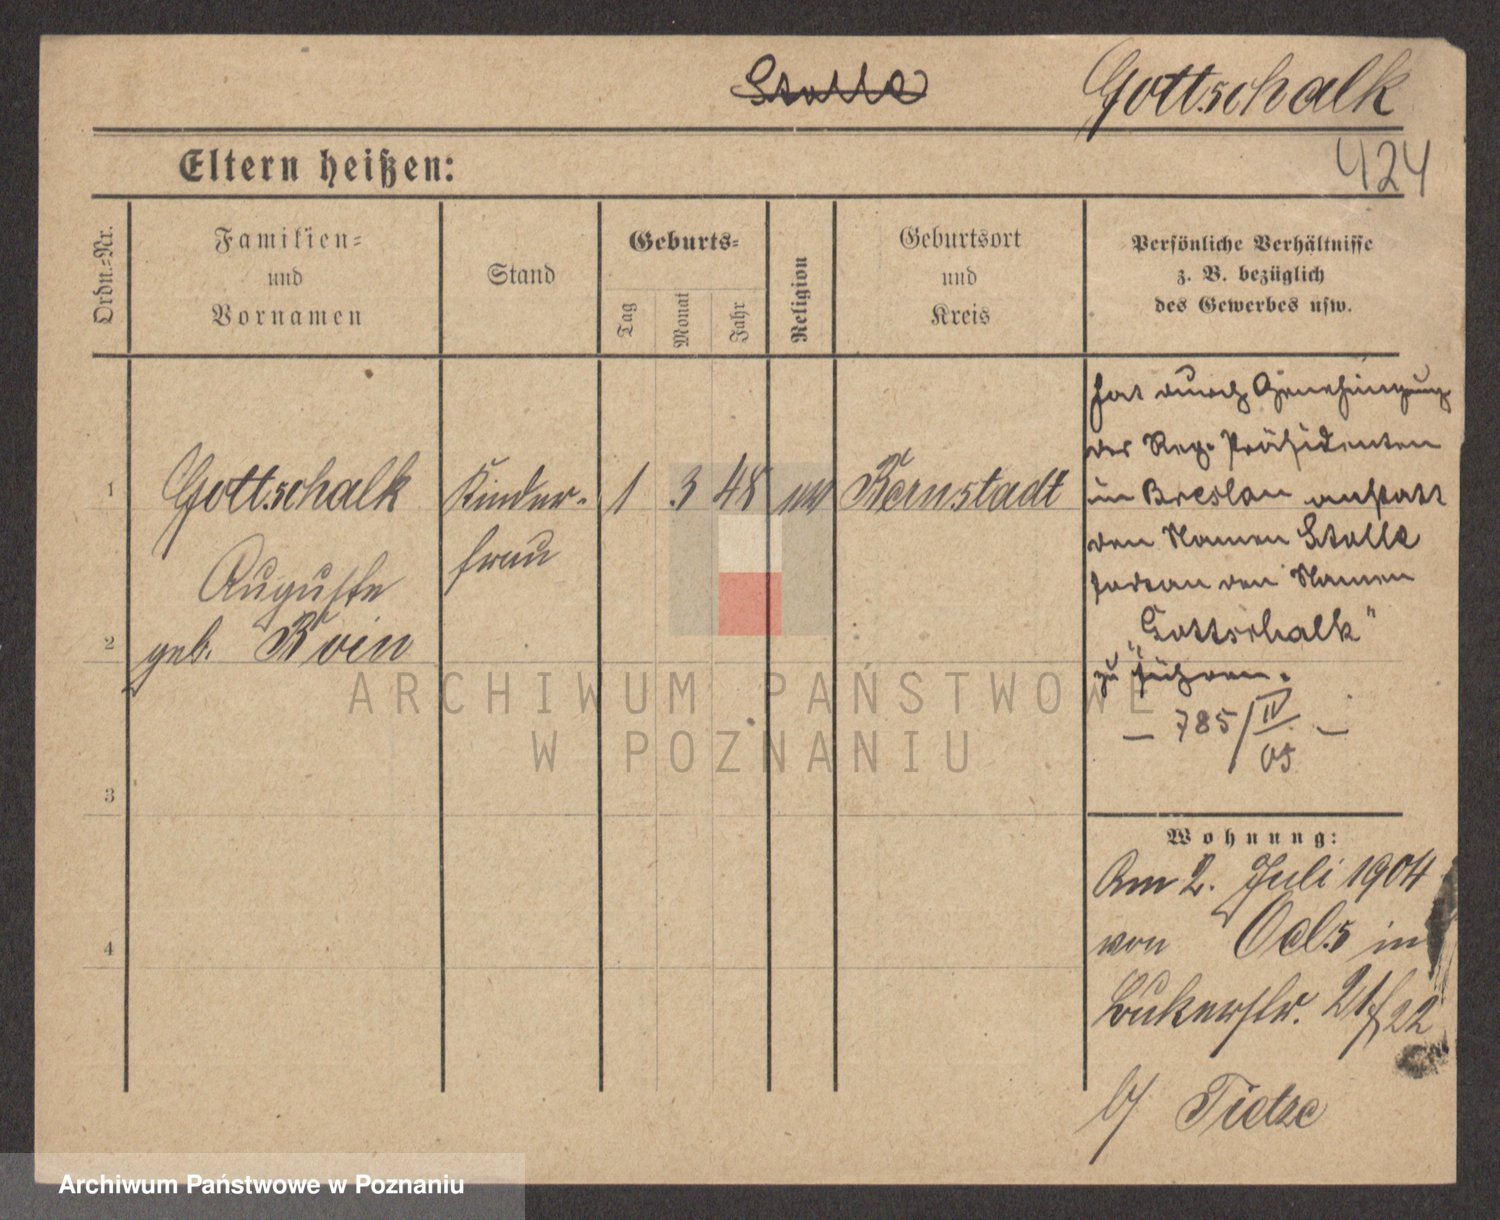 Stolle Gottschalk
Eltern heißen:
424
Ordn.-Nr.
Familien-
und
Vornamen
Stand
Geburts-
Tag
Monat
Jahr
Religion
Geburtsort
und
Kreis
Persönliche Verhältnisse
z. B. bezüglich
des Gewerbes usw.
1
Gottschalk
Auguste
2
geb.
Kinder-
frau
1 3 48
Bernstadt
hat durch Genehmigung
des Reg. Präsidenten
in Breslau anstatt
den Namen Stolle
fortan den Namen
„Gottschalk"
zu führen.
— 785/IV 05 —
3
4
Wohnung:
Am 2. Juli 1904
von Oels in
21/22
b/ Tietze
ARCHIWUM PAŃSTWOWE
W POZNANIU
Archiwum Państwowe w Poznaniu